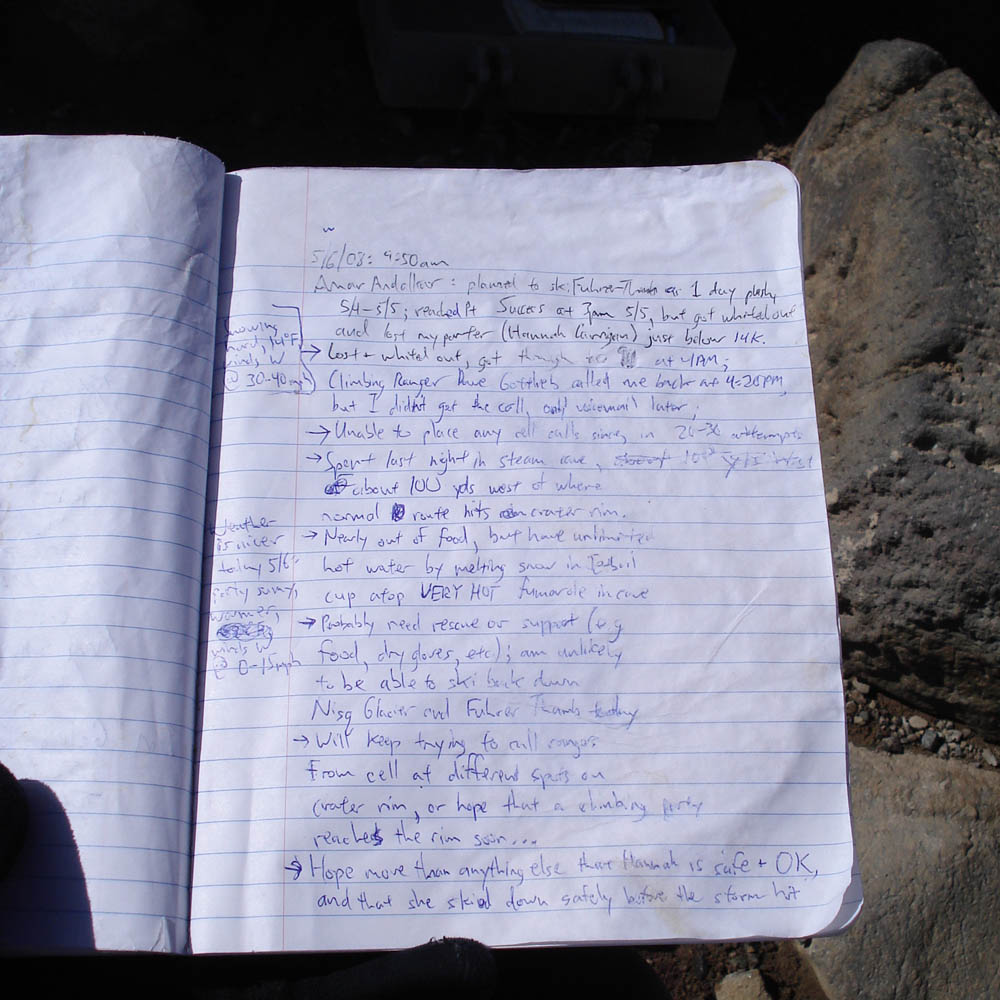 5/6/08: 9:50am
Amar Andalkar: planned to ski Fuhrer Thumb as 1 day push,
5/4-5/5; reached Pt Success at 3pm 5/5, but got whited out
and lost my partner (Hannah Carrigan) just below 14K.
→ Lost + whited out, got through to 911 at 4PM;
Climbing Ranger Dave Gottlieb called me back at 4:20PM,
but I didn't get the call, only voicemail later;
→ Unable to place any cell calls since, in 20-30 attempts
→ Spent last night in steam cave,
about 100 yds west of where
normal route hits crater rim.
→ Nearly out of food, but have unlimited
hot water by melting snow in
cup atop VERY HOT fumarole in cave
→ Probably need rescue or support (e.g.
food, dry gloves, etc); am unlikely
to be able to ski back down
Nisq Glacier and Fuhrer Thumb today
→ Will keep trying to call rangers
from cell at different spots on
crater rim, or hope that a climbing party
reaches the rim soon...
→ Hope more than anything else that Hannah is safe + OK,
and that she skied down safely before the storm hit
snowing
hard, 14°F,
winds W
@ 30-40mph
Weather
is nicer
today 5/6:
partly sunny,
warmer,
winds W
@ 0-15mph